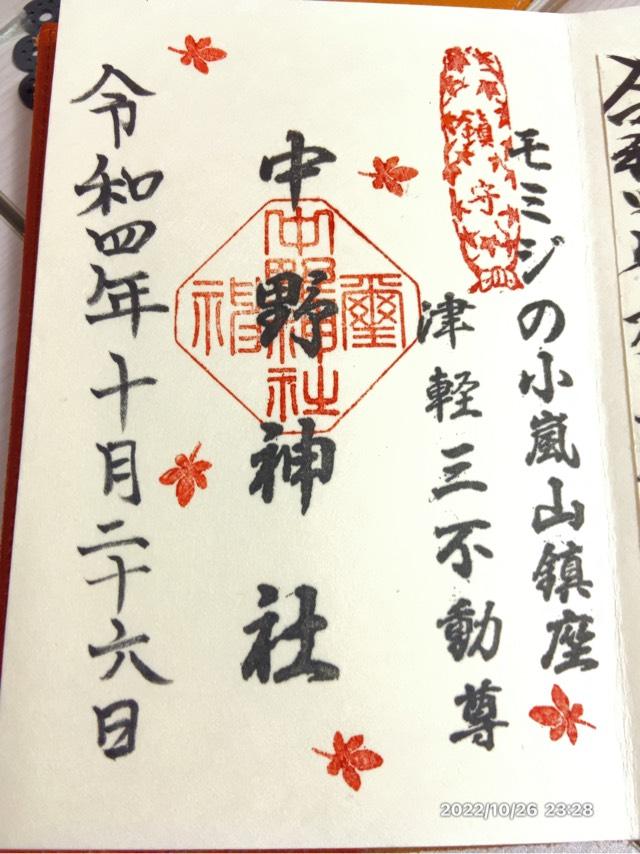 モミジの小嵐山鎮座
津軽三不動尊
鎮守
中野神社
令和四年十月二十六日
2022/10/26 23:28